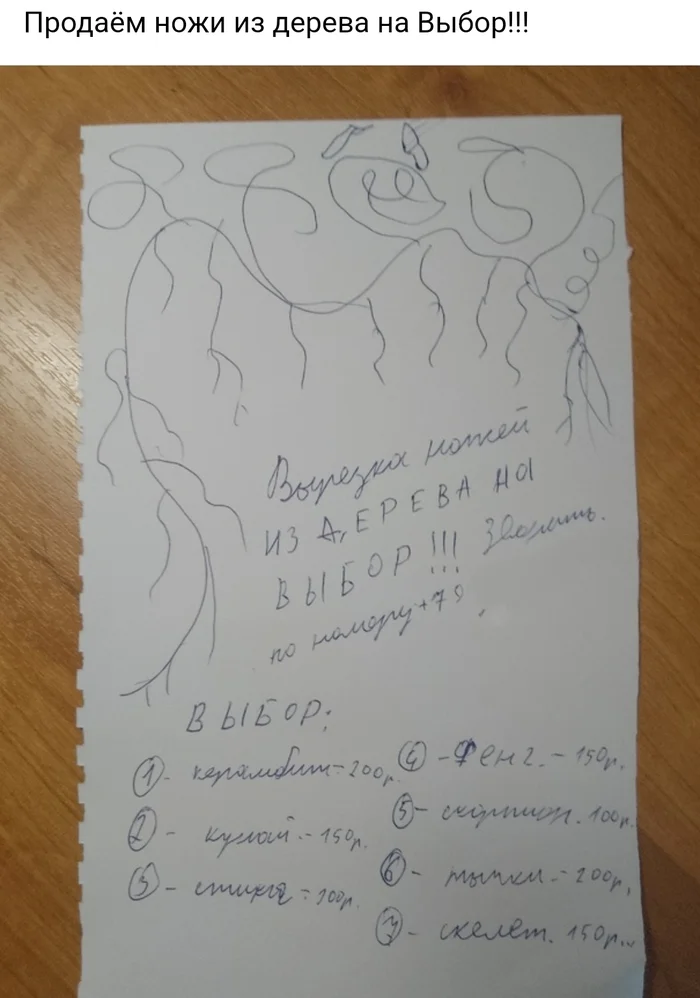 Продаём ножи из дерева на Выбор!!!
Вырезка ножей
ИЗ ДЕРЕВА НА
ВЫБОР!!! Звонить.
по номеру +79
ВЫБОР:
1 - керамбит - 200р.
2 - кунай - 150р.
3 - - 200р.
4 - Фенг. - 150р.
5 - скорпион. 100р.
6 - тычки - 200р.
7 - скелет. 150р.